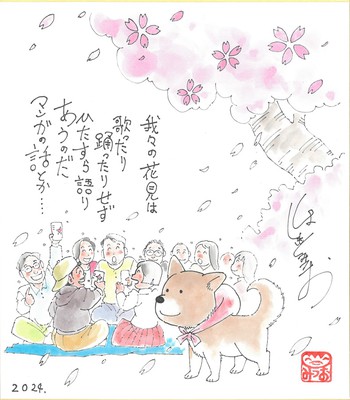 我々の花見は
歌ったり
踊ったりせず
ひたすら語り
あうのだ
マンガの話とか……
2024.